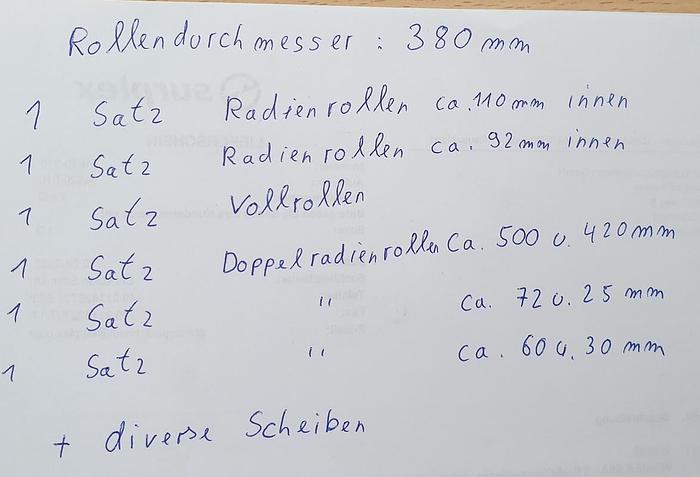 Rollendurchmesser : 380 mm
1 Satz Radienrollen ca. 110 mm innen
1 Satz Radienrollen ca. 92 mm innen
1 Satz Vollrollen
1 Satz Doppelradienrollen Ca. 500 u. 420 mm
1 Satz " ca. 72 u. 25 mm
1 Satz " ca. 60 u. 30 mm
+ diverse Scheiben